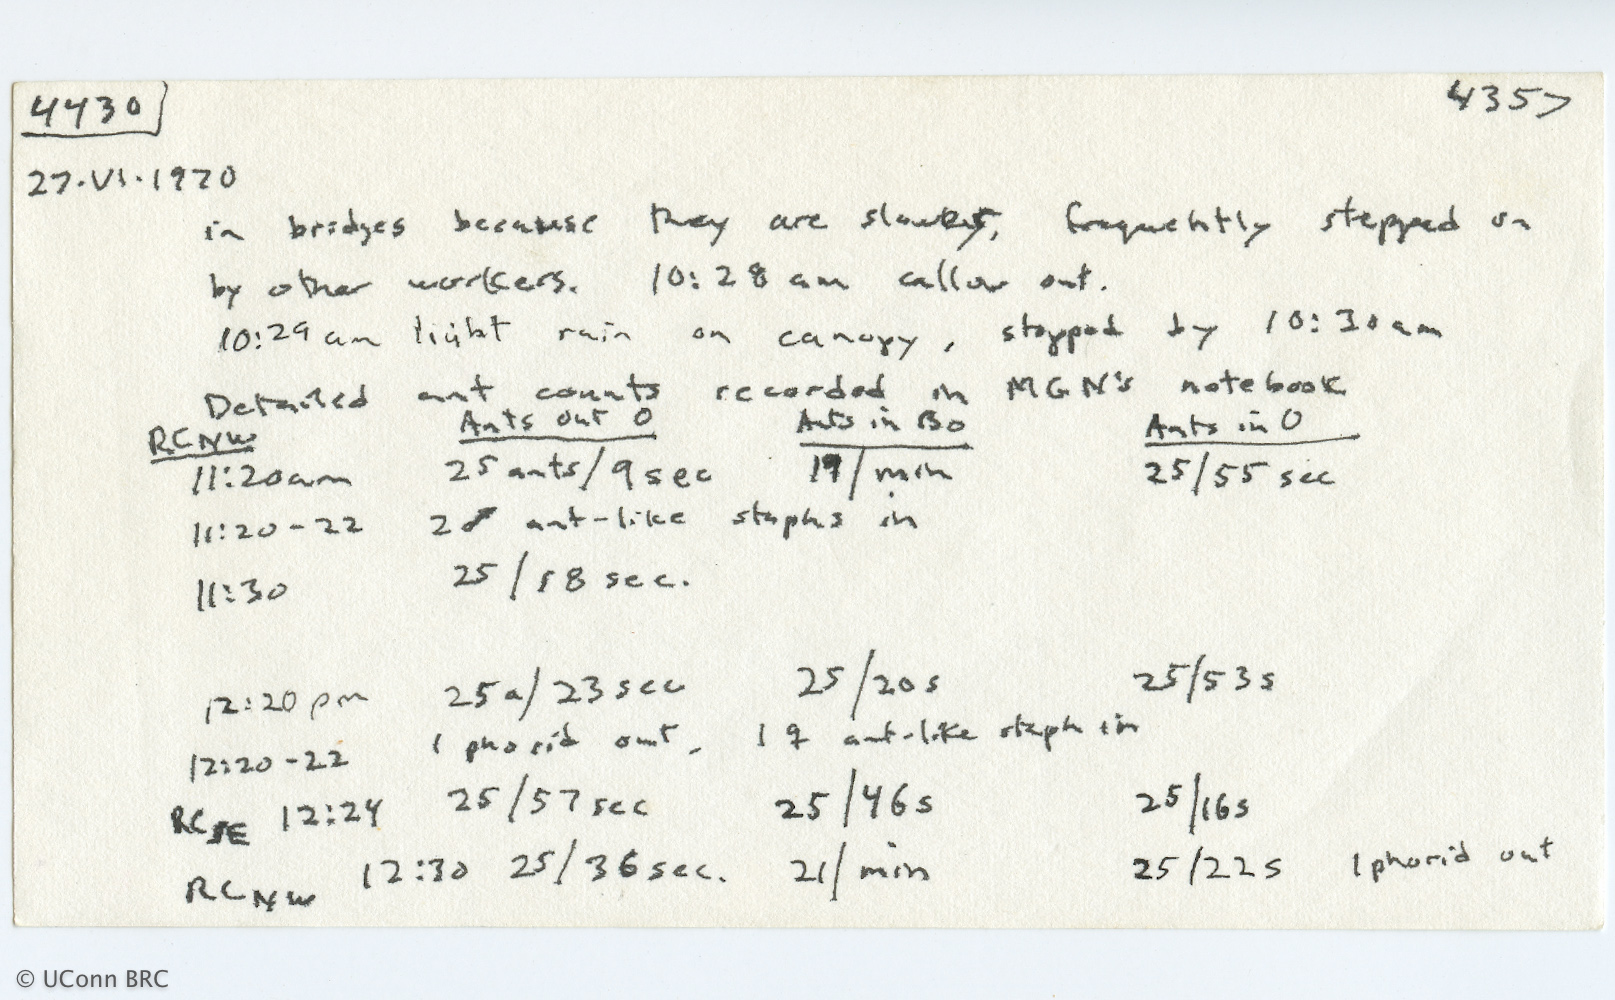 4430 4357
27.VI.1970
in bridges because they are slower, frequently stepped on
by other workers. 10:28 am callow out.
10:29 am light rain on canopy, stopped by 10:30 am
Detailed ant counts recorded in MGN's notebook
RCNW Ants out O Ants in Bo Ants in O
11:20am 25 ants/9 sec 19/min 25/55 sec
11:20-22 ant-like staphs in
11:30 25/58 sec.
12:20 pm 25a/23 sec 25/20s 25/53s
12:20-22 1 phorid out, 1 ♀ ant-like staph in
RCSE 12:24 25/57 sec 25/46s 25/16s
RCNW 12:30 25/36 sec. 21/min 25/22s 1 phorid out
© UConn BRC